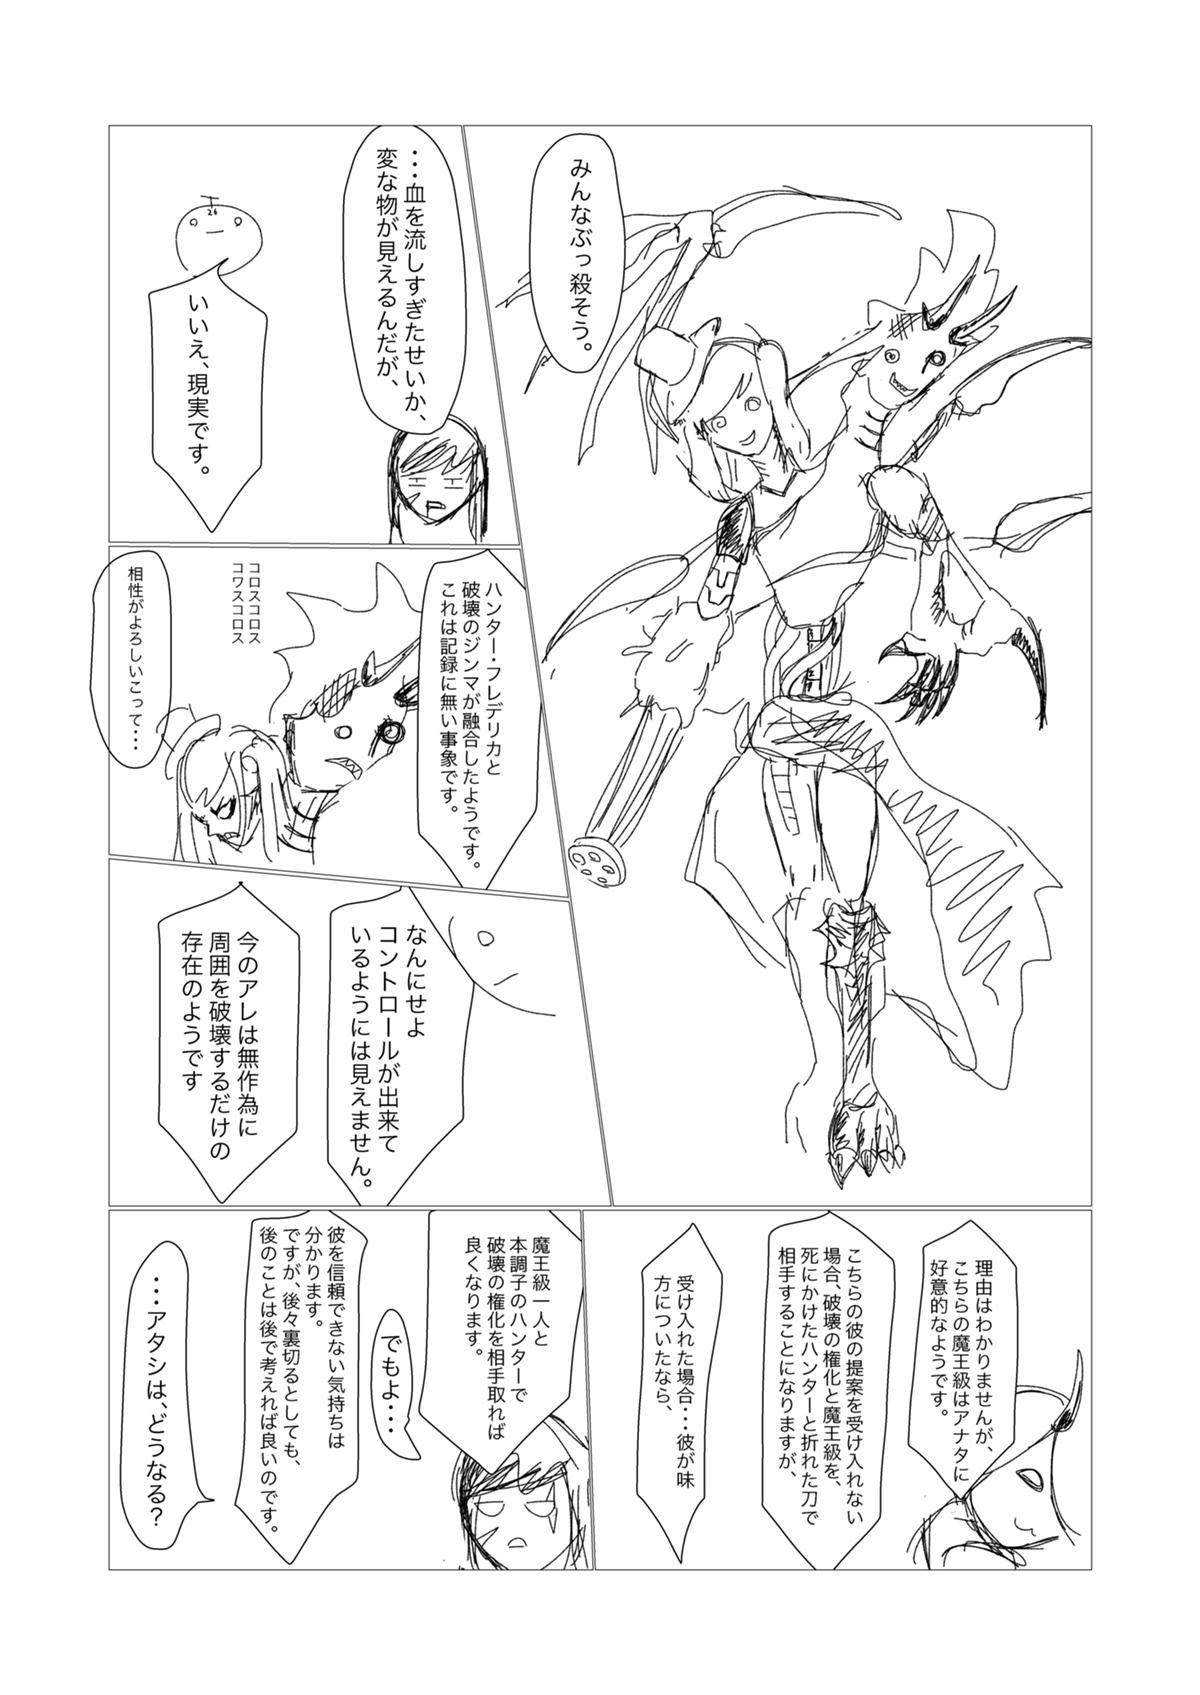 みんなぶっ殺そう。
・・・血を流しすぎたせいか、
変な物が見えるんだが、
いいえ、現実です。
ハンター・フレデリカと
破壊のジンマが融合したようです。
これは記録に無い事象です。
コロスコロス
コワスコロス
相性がよろしいこって・・・
なんにせよ
コントロールが出来て
いるようには見えません。
今のアレは無作為に
周囲を破壊するだけの
存在のようです
理由はわかりませんが、
こちらの魔王級はアナタに
好意的なようです。
こちらの彼の提案を受け入れない
場合、破壊の権化と魔王級を、
死にかけたハンターと折れた刀で
相手することになりますが、
受け入れた場合・・・彼が味
方についたなら、
魔王級一人と
本調子のハンターで
破壊の権化を相手取れば
良くなります。
でもよ・・・
彼を信頼できない気持ちは
分かります。
ですが、後々裏切るとしても、
後のことは後で考えれば良いのです。
・・・アタシは、どうなる?